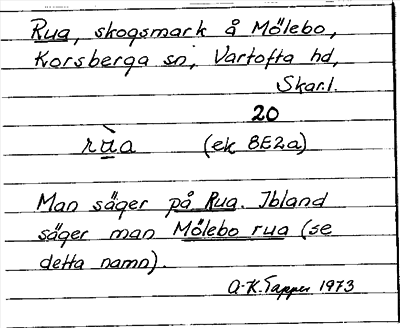 Rua, skogsmark å Mölebo,
Korsberga sn, Vartofta hd,
Skar.l.
20
rùa (ek 8E2a)
Man säger på Rua. Ibland
säger man Mölebo rua (se
detta namn).
A-K. Tapper 1973